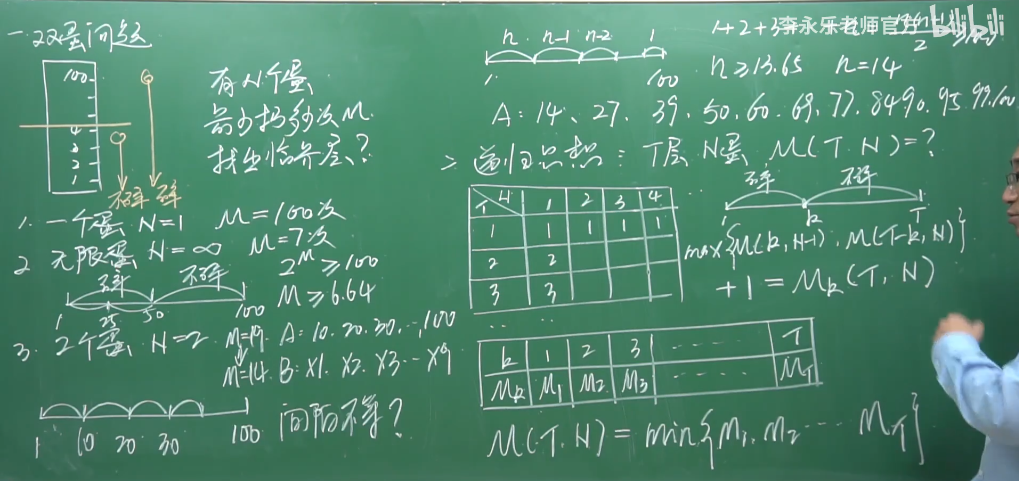 一.双蛋问题
100
4
3
2
1
不碎 碎
有N个蛋
最少扔多少次M.
找出临界层?
1. 一个蛋 N=1 M=100次
2 无限蛋 N=∞ M=7次
2^M ≥100
M≥6.64
碎 不碎
1 25 50 100
3. 2个蛋 N=2. M=19. A: 10. 20. 30. ..., 100
M=14. B: X1. X2. X3... X9
1 10 20 30 100 间隔不等?
n n-1 n-2 1
1 100
1+2+3
2
李永乐老师官方
bilibili
n≥13.65 n=14
A: 14、27. 39. 50. 60. 69. 77. 84 90. 95. 99. 100
二 递归思想: T层 N蛋 M(T.N)=?
碎 不碎
1 k T
T N 1 2 3 4 ...
1 1 1 1 1
2 2
3 3
... ...
max{M(k,N-1), M(T-k,N)}
+1 = Mk(T,N)
k 1 2 3 ...... T
Mk M1 M2 M3 ...... MT
M(T.N) = min{M1, M2 ... MT}